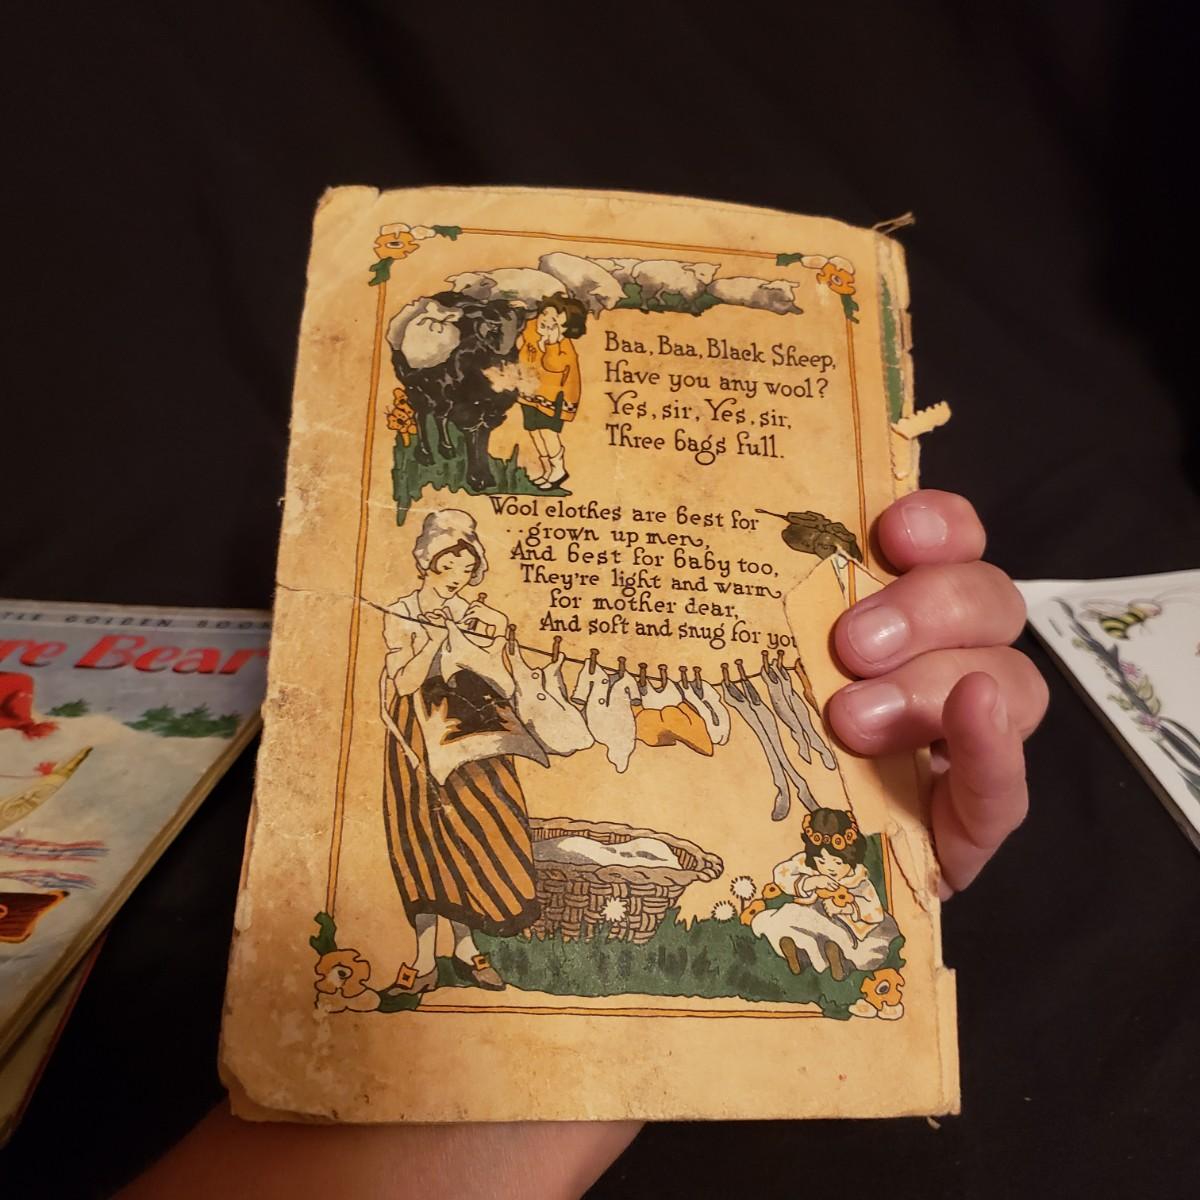 Baa, Baa, Black Sheep,
Have you any wool?
Yes, sir, Yes, sir,
Three bags full.
Wool clothes are best for
grown up men,
And best for baby too,
They're light and warm
for mother dear,
And soft and snug for you
TLE GOLDEN BOOK
re Bear